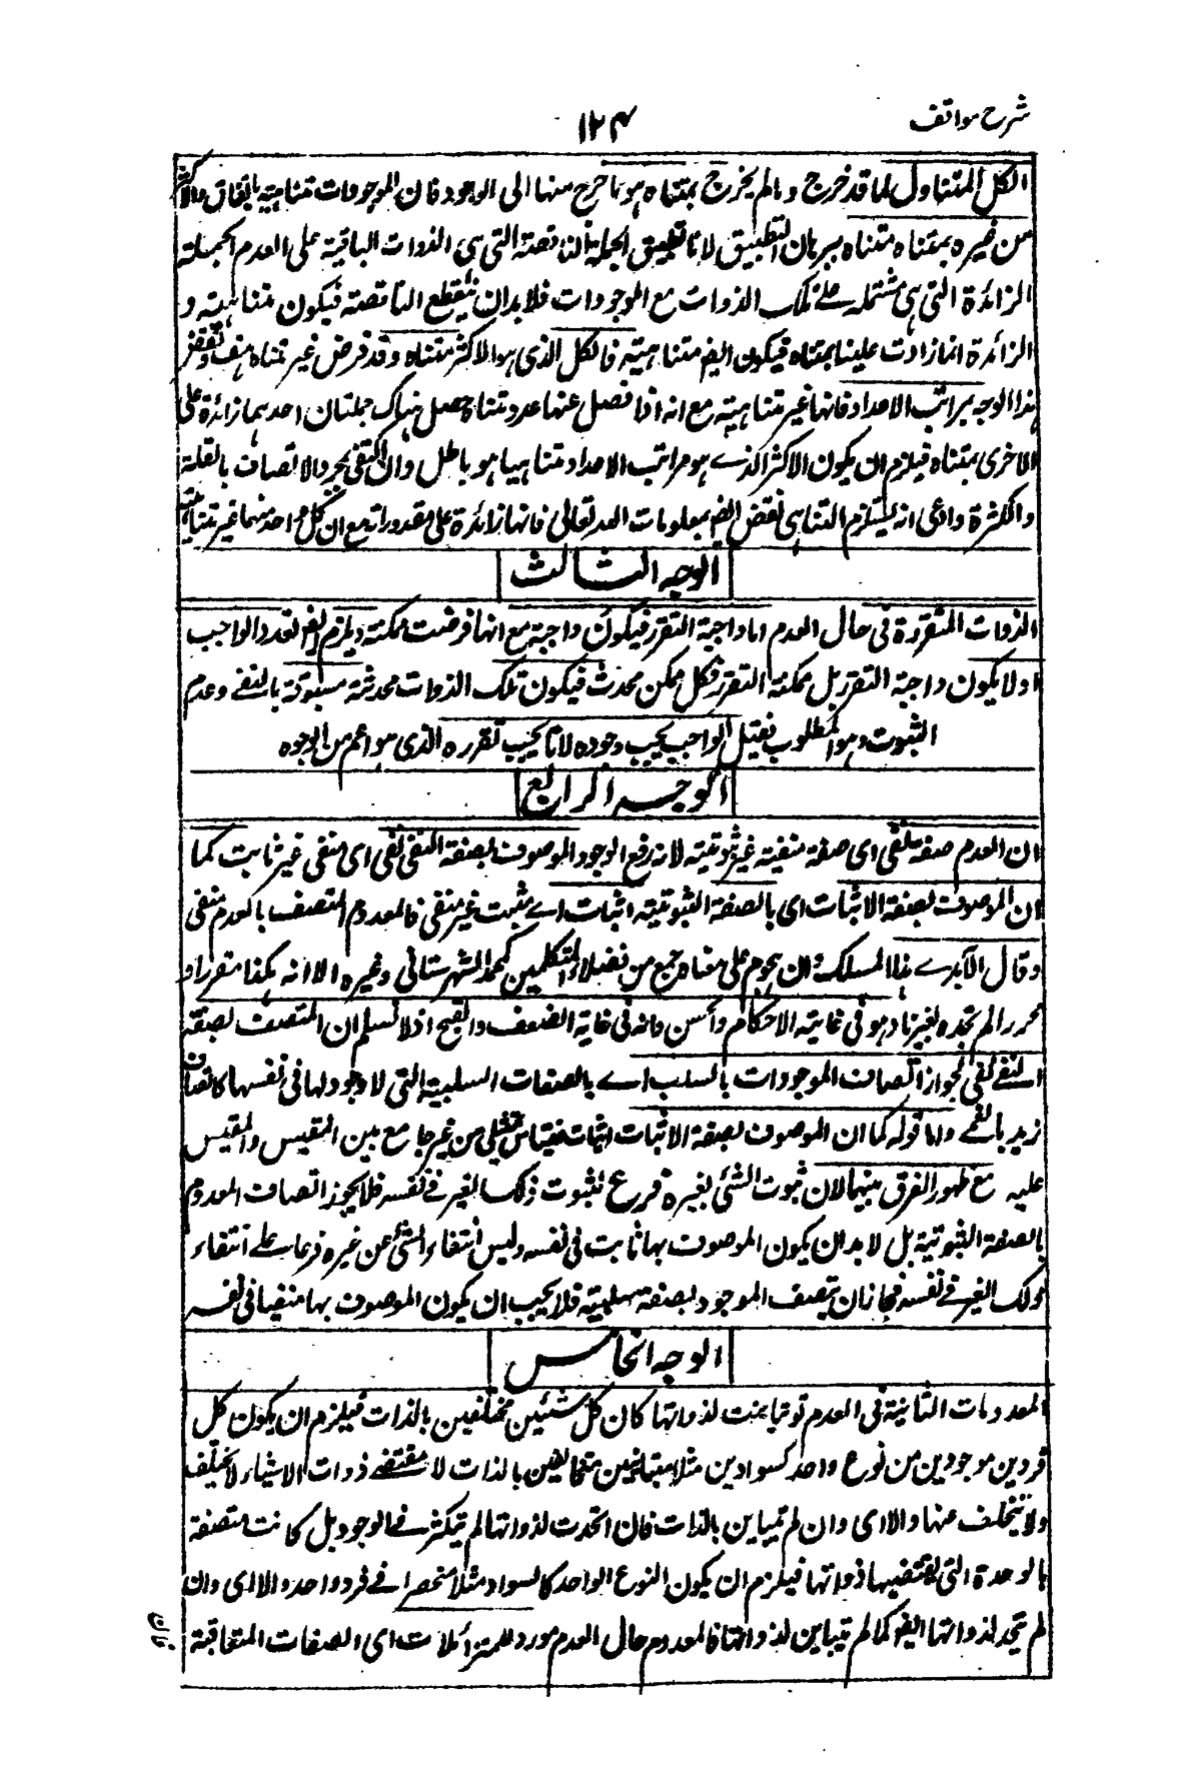 شرح مواقف
١٢٤
الكل المتناول لما قد خرج وما لم يخرج بمتناه هو ما خرج منها الى الوجود فان الموجودات متناهية باتفاق والاكثر
من غيره بمتناه متناه ببرهان التطبيق لانا نطبق الجملة الناقصة التى هى الذوات الباقية على العدم الجملة
الزائدة التى هى مشتملة على تلك الذوات مع الموجودات فلا بد ان تنقطع الناقصة فيكون متناهية و
الزائدة انما زادت علينا بمتناه فيكون ايضا متناهية فالكل الذى هو الاكثر متناه وقد فرض غير متناه هف ونقض
هذا الوجه بمراتب الاعداد فانها غير متناهية مع انه اذا فصل عنها عدد متناه حصل هناك جملتان احدهما زائدة على
الاخرى بمتناه فيلزم ان يكون الاكثر الذى هو مراتب الاعداد متناهيا هو باطل وان اكتفى بمجرد الاتصاف بالقلة
والكثرة وادعى انه يستلزم التناهى نقض ايضا بمعلومات الله تعالى فانها زائدة على مقدوراته مع ان كل واحد منهما غير متناهية
الوجه الثالث
الذوات المتقررة فى حال العدم اما واجبة التقرر فيكون واجبة مع انها فرضت ممكنة ويلزم ايضا تعدد الواجب
او لا يكون واجبة التقرر بل ممكنة التقرر فكل ممكن محدث فيكون تلك الذوات محدثة مسبوقة بالنفى وعدم
الثبوت وهو المطلوب فقيل الواجب يجب وجوده لا ما يجب تقرره الذى هو اعم من الوجود
الوجه الرابع
ان العدم صفة نفى اى صفة منفية غير ثبوتية لانه رفع الوجود الموصوف بصفة النفى نفى اى منفى غير ثابت كما
ان الموصوف بصفة الاثبات اى بالصفة الثبوتية اثبات اى مثبت غير منفى فالمعدوم المتصف بالعدم منفى
وقال الآمدى هذا المسلك وان يحوم على معناه جمع من فضلاء المتكلمين كمحمد الشهرستانى وغيره الا انه هكذا مقررا و
محررا لم نجده لغيرنا وهو فى غاية الاحكام واحسن وانه فى غاية الضعف والقبح اذ لا نسلم ان المتصف بصفة
النفى نفى لجواز اتصاف الموجودات بالسلب اى بالصفات السلبية التى لا وجود لها فى نفسها كاتصاف
زيد بالعمى واما قوله كما ان الموصوف بصفة الاثبات اثبات فقياس تمثيلى من غير جامع بين المقيس والمقيس
عليه مع ظهور الفرق بينهما لان ثبوت الشئ لغيره فرع لثبوت ذلك الغير فى نفسه فلا يجوز اتصاف المعدوم
بالصفة الثبوتية بل لا بد ان يكون الموصوف بها ثابت فى نفسه وليس انتفاء الشئ عن غيره فرعا على انتفاء
ذلك الغير فى نفسه فجاز ان يتصف الموجود بصفة سلبية فلا يجب ان يكون الموصوف بها منفيا فى نفسه
الوجه الخامس
المعدومات الثابتة فى العدم لو تباينت لذواتها كان كل شيئين مختلفين بالذات فيلزم ان يكون كل
فردين موجودين من نوع واحد كسوادين مثلا متباينين متخالفين بالذات لا مقتضى ذوات الاشياء لا يختلف
ولا يتخلف عنها والا اى وان لم يتباين بالذات فان اتحدت لذواتها لم يتكثر فى الوجود بل كانت متصفة
بالوحدة التى يقتضيها ذواتها فيلزم ان يكون النوع الواحد كالسواد مثلا منحصرا فى فرد واحد والا اى وان
لم يتحد لذواتها ايضا كما لم يتباين لذواتها فالمعدوم حال العدم مورد للمتزائلات اى الصفات المتعاقبة
فان